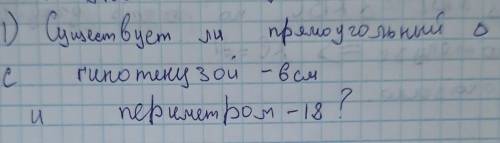 1) Существует ли прямоугольный △
с гипотенузой - 8 см
и периметром - 18?